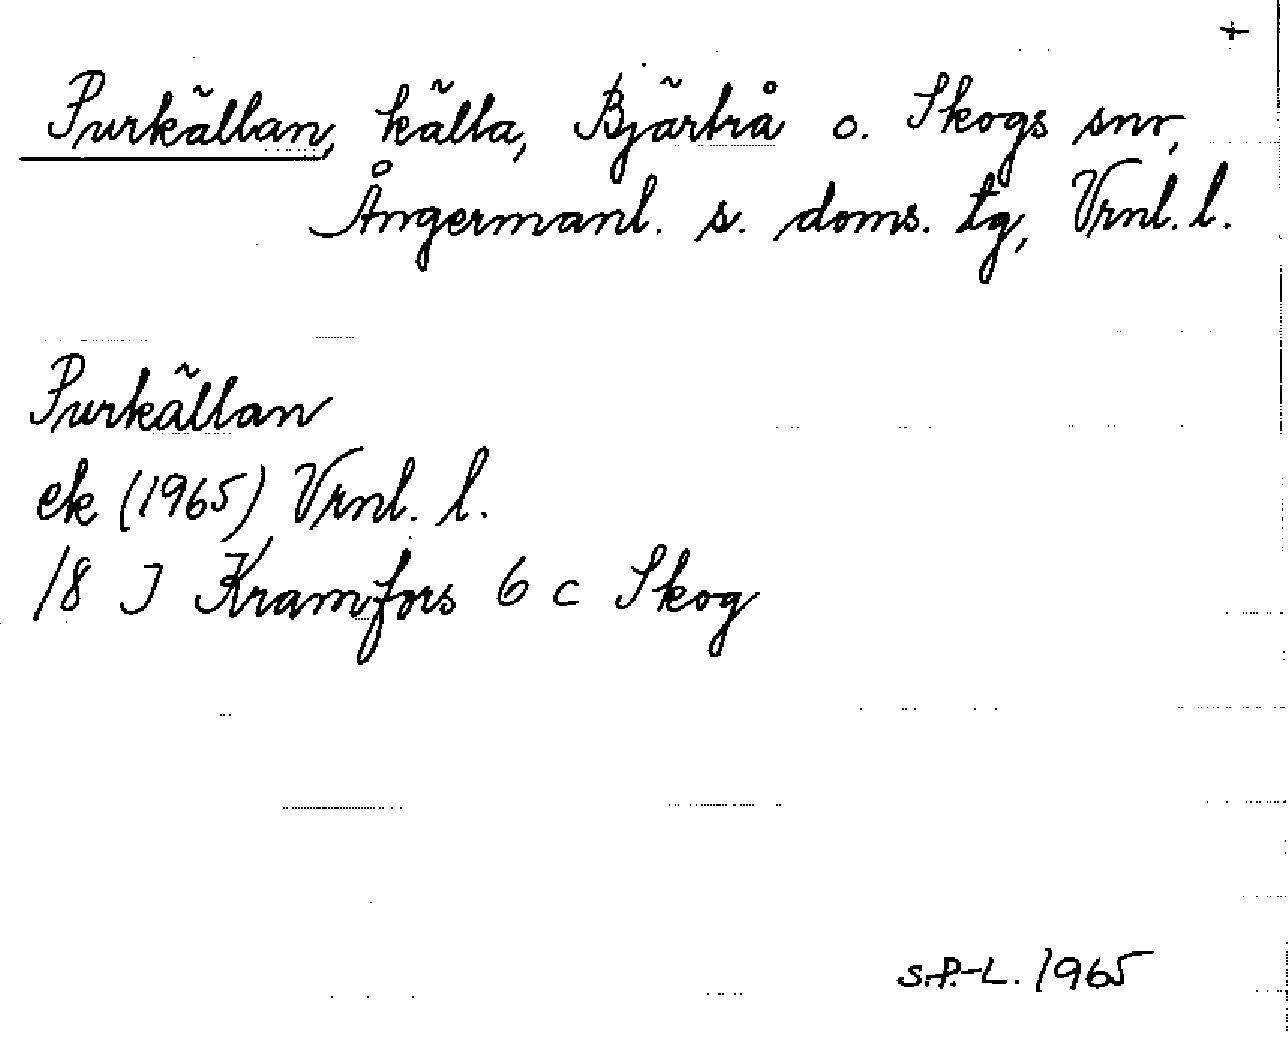 +
Purkällan, källa, Bjärtrå o. Skogs snr,
Ångermanl. s. doms. tg, Vrnl. l.
Purkällan
ek (1965) Vrnl. l.
18 J Kramfors 6 c Skog
S.P.-L. 1965